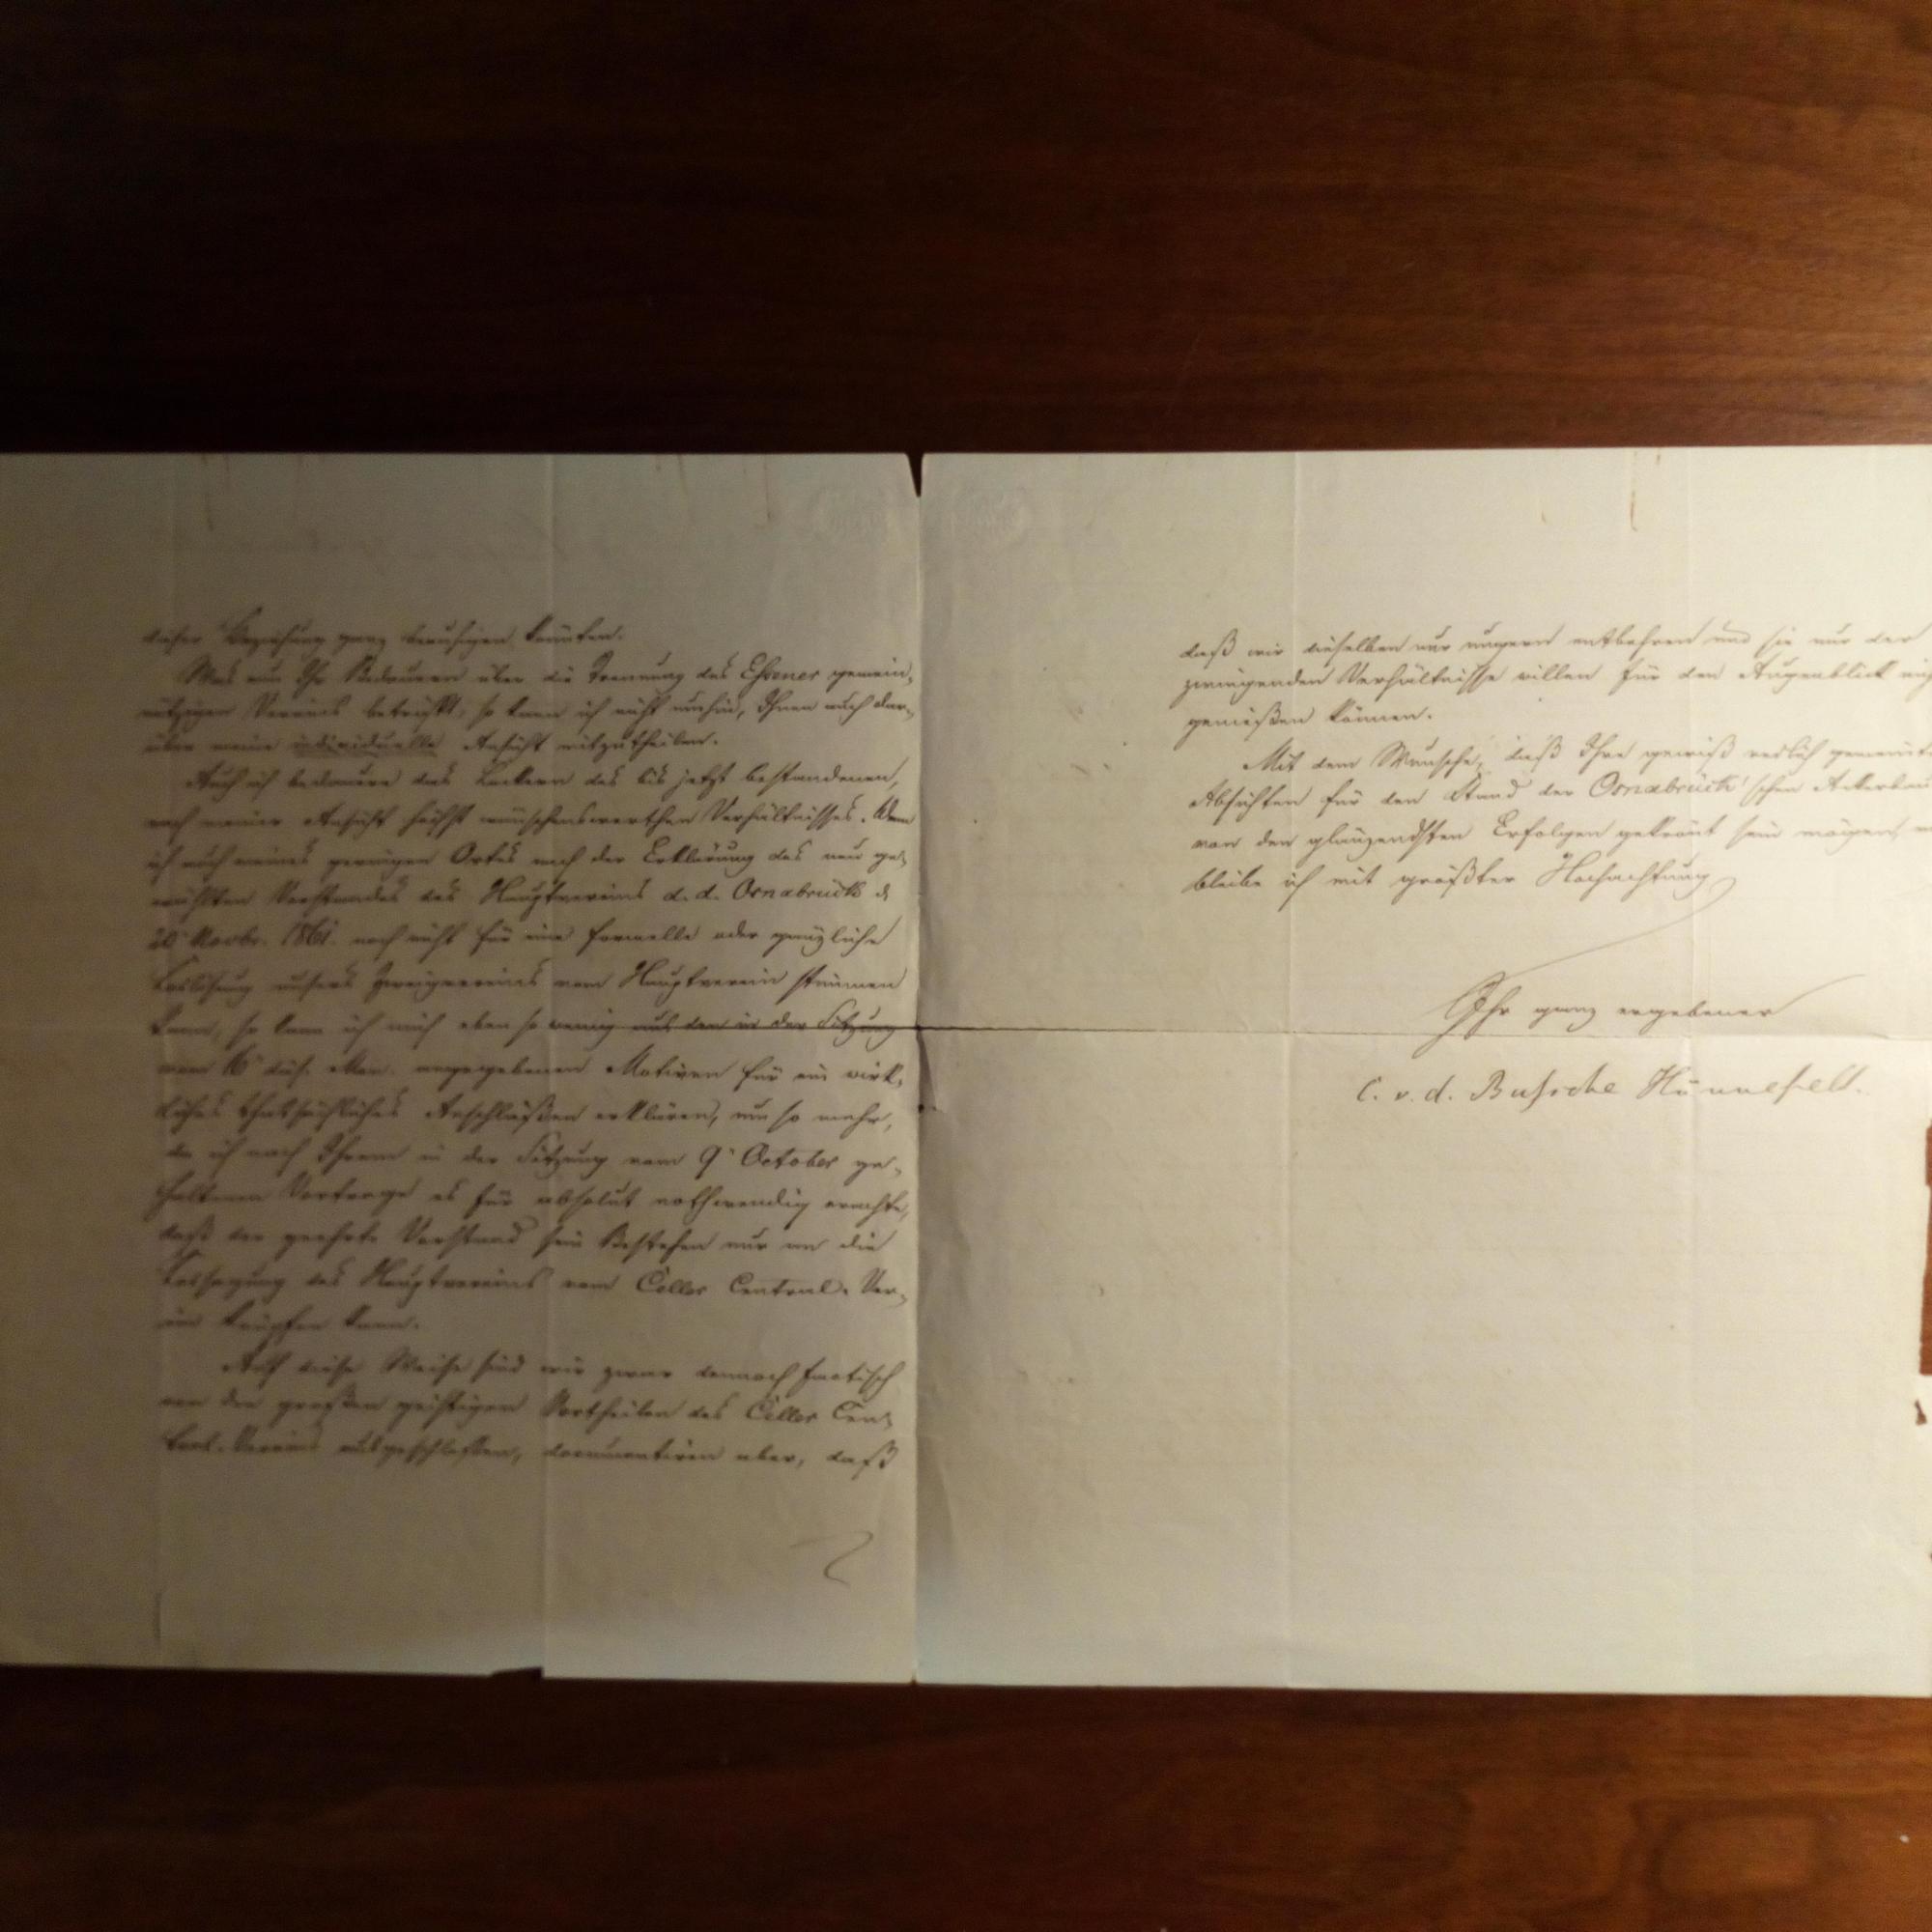 dieser Beziehung ganz beruhigen könnten.
Was nun Ihr Bedauern über die Trennung des Essener gemein-
nützigen Vereins betrifft, so kann ich nicht umhin, Ihnen auch dar-
über meine individuelle Ansicht mitzutheilen.
Auch ich bedauere das Lockern des bis jetzt bestandenen,
nach meiner Ansicht höchst wünschenswerthen Verhältnisses. Wenn
ich auch meines geringen Ortes nach der Erklärung des neu ge-
wählten Vorstandes des Hauptvereins d. d. Osnabrück d
20 Novbr. 1861. noch nicht für eine formelle oder gänzliche
Loslösung unsers Zweigvereins vom Hauptverein stimmen
kann, so kann ich mich eben so wenig aus den in der Sitzung
vom 16 dies. Mon. angegebenen Motiven für ein wirk-
liches thatsächliches Anschließen erklären, um so mehr,
da ich nach Ihrem in der Sitzung vom 9 October ge-
haltenen Vortrage es für absolut nothwendig erachte,
daß der geehrte Vorstand sein Bestehen nur an die
Lossagung des Hauptvereins vom Celler Central-Ver-
ein knüpfen kann.
Auf diese Weise sind wir zwar dennoch factisch
von den großen geistigen Vortheilen des Celler Cen-
tral-Vereins ausgeschlossen, documentiren aber, daß
daß wir dieselben nur ungern entbehren und sie nur der
zwingenden Verhältnisse willen für den Augenblick
genießen können.
Mit dem Wunsche, daß Ihre gewiß redlich gemeinten
Absichten für den Stand der Osnabrück'schen Ackerbau
von den glänzendsten Erfolgen gekrönt sein mögen,
bleibe ich mit größter Hochachtung
Ihr ganz ergebener
C. v. d. Bussche Hünnefeld.